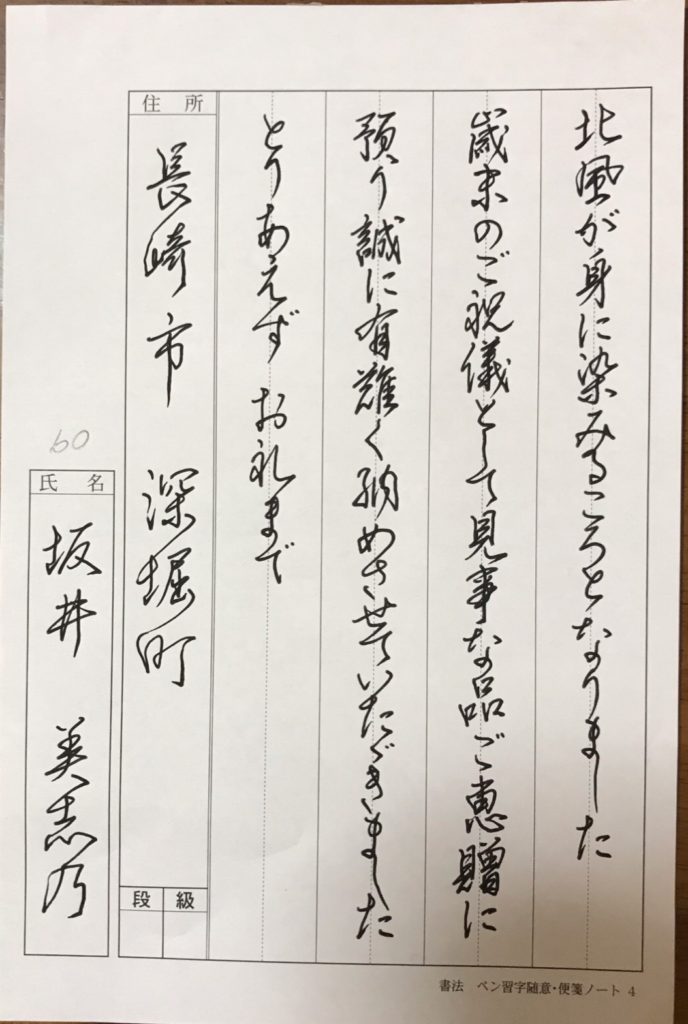 北風が身に染みるころとなりました
歳末のご祝儀として見事な品ご恵贈に
預り誠に有難く納めさせていただきました
とりあえず お礼まで
住所
長崎市 深堀町
段級
60
氏名
坂井 美志乃
書法 ペン習字随意・便箋ノート 4